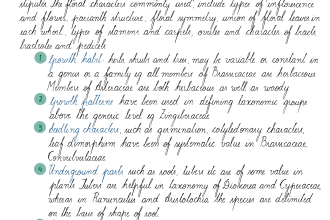 stipule. The floral characters commonly used, include types of inflorescence
and flower, perianth structure, floral symmetry, union of floral leaves in
each whorl, types of stamens and carpels, ovules and character of fruit,
bracteoles and pedicels.
1 Growth habit: herbs, shrubs and tree, may be variable or constant in
a genus or a family eg. all members of Brassicaceae are herbaceous
Members of Asteraceae are both herbaceous as well as woody.
2 Growth patterns have been used in defining taxonomic groups
above the generic level eg. Zingiberaceae
3 Seedling characters, such as germination, cotyledonary characters,
leaf dimorphism have been of systematic value in Brassicaceae,
Convolvulaceae.
4 Underground parts such as roots, tubers etc are of some value in
plants. Tubers are helpful in taxonomy of and Cyperaceae,
whereas in Ranunculus and Aristolochia the species are delimited
on the basis of shape of root.